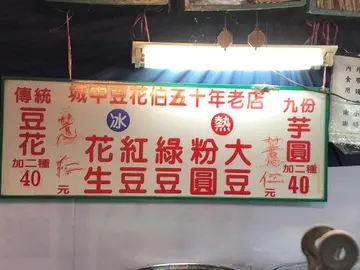 城中豆花伯五十年老店
傳統
豆花
加二種
40元
薏仁
冰
熱
花生
紅豆
綠豆
粉圓
大豆
薏仁
九份
芋圓
加二種
元40